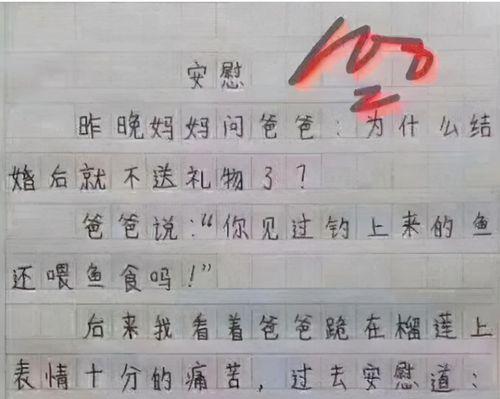 100
安慰
昨晚妈妈问爸爸:为什么结
婚后就不送礼物了?
爸爸说:“你见过钓上来的鱼
还喂鱼食吗!”
后来我看着爸爸跪在榴莲上
表情十分的痛苦,过去安慰道: